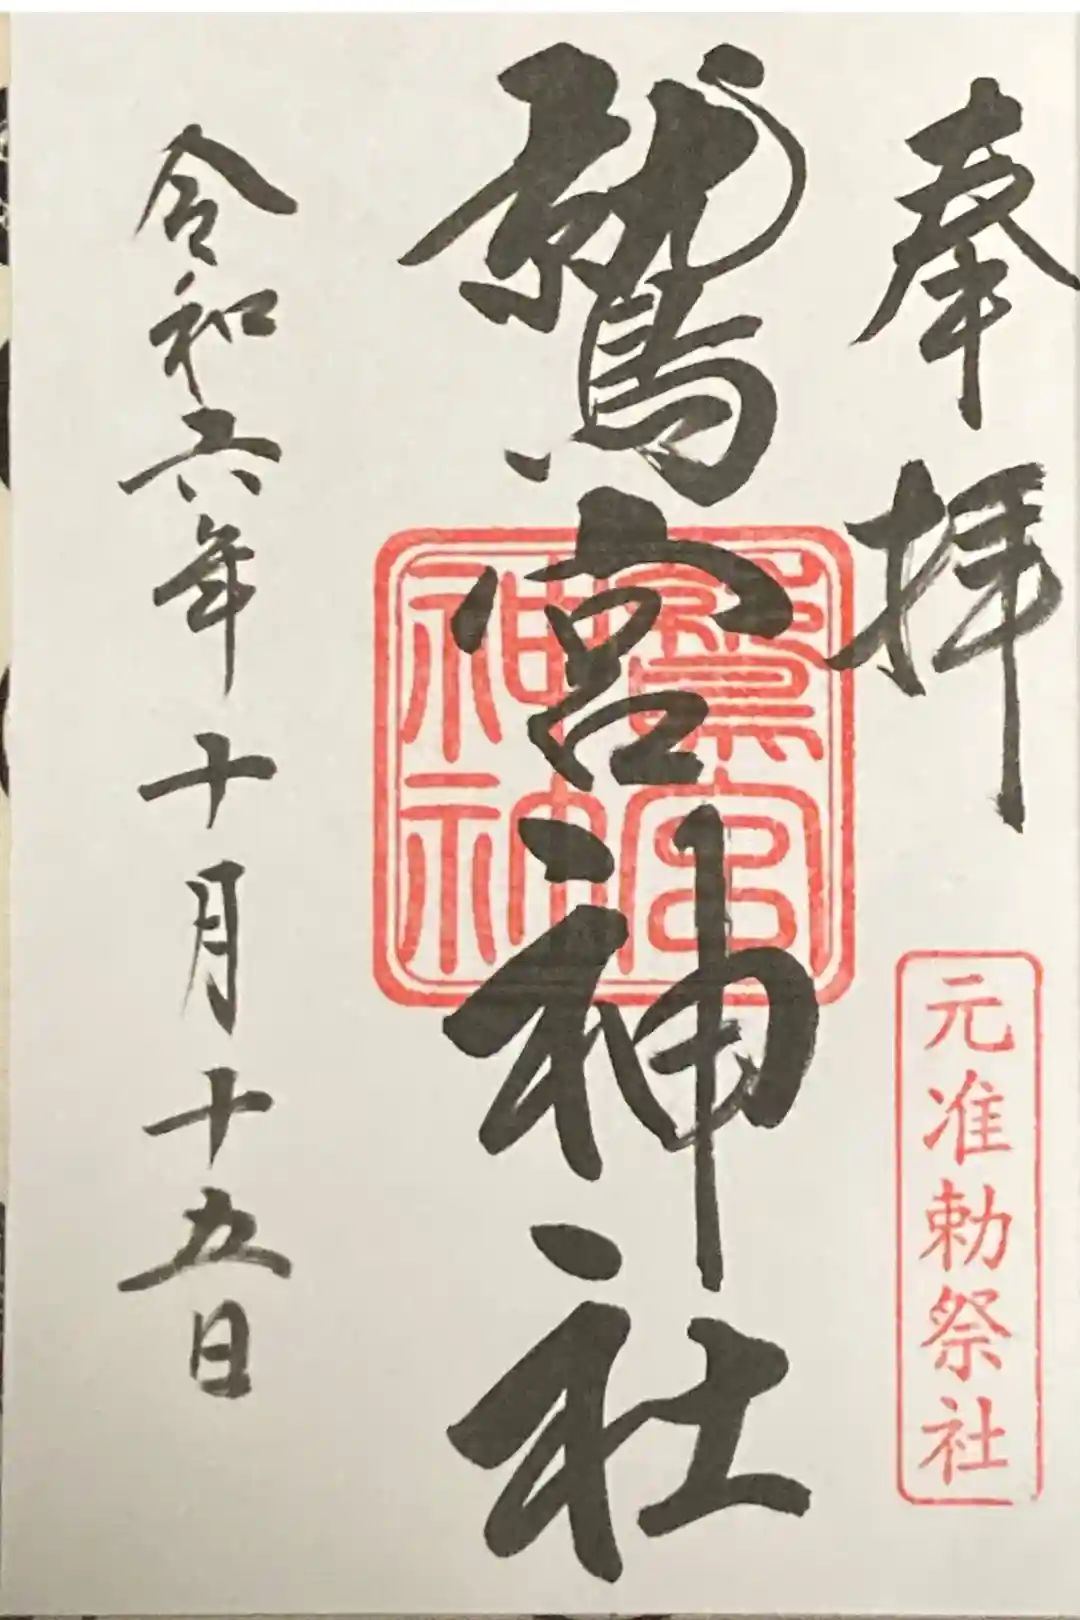 奉拝
元准勅祭社
鷲宮神社
鷲宮
神社
令和六年十月十五日